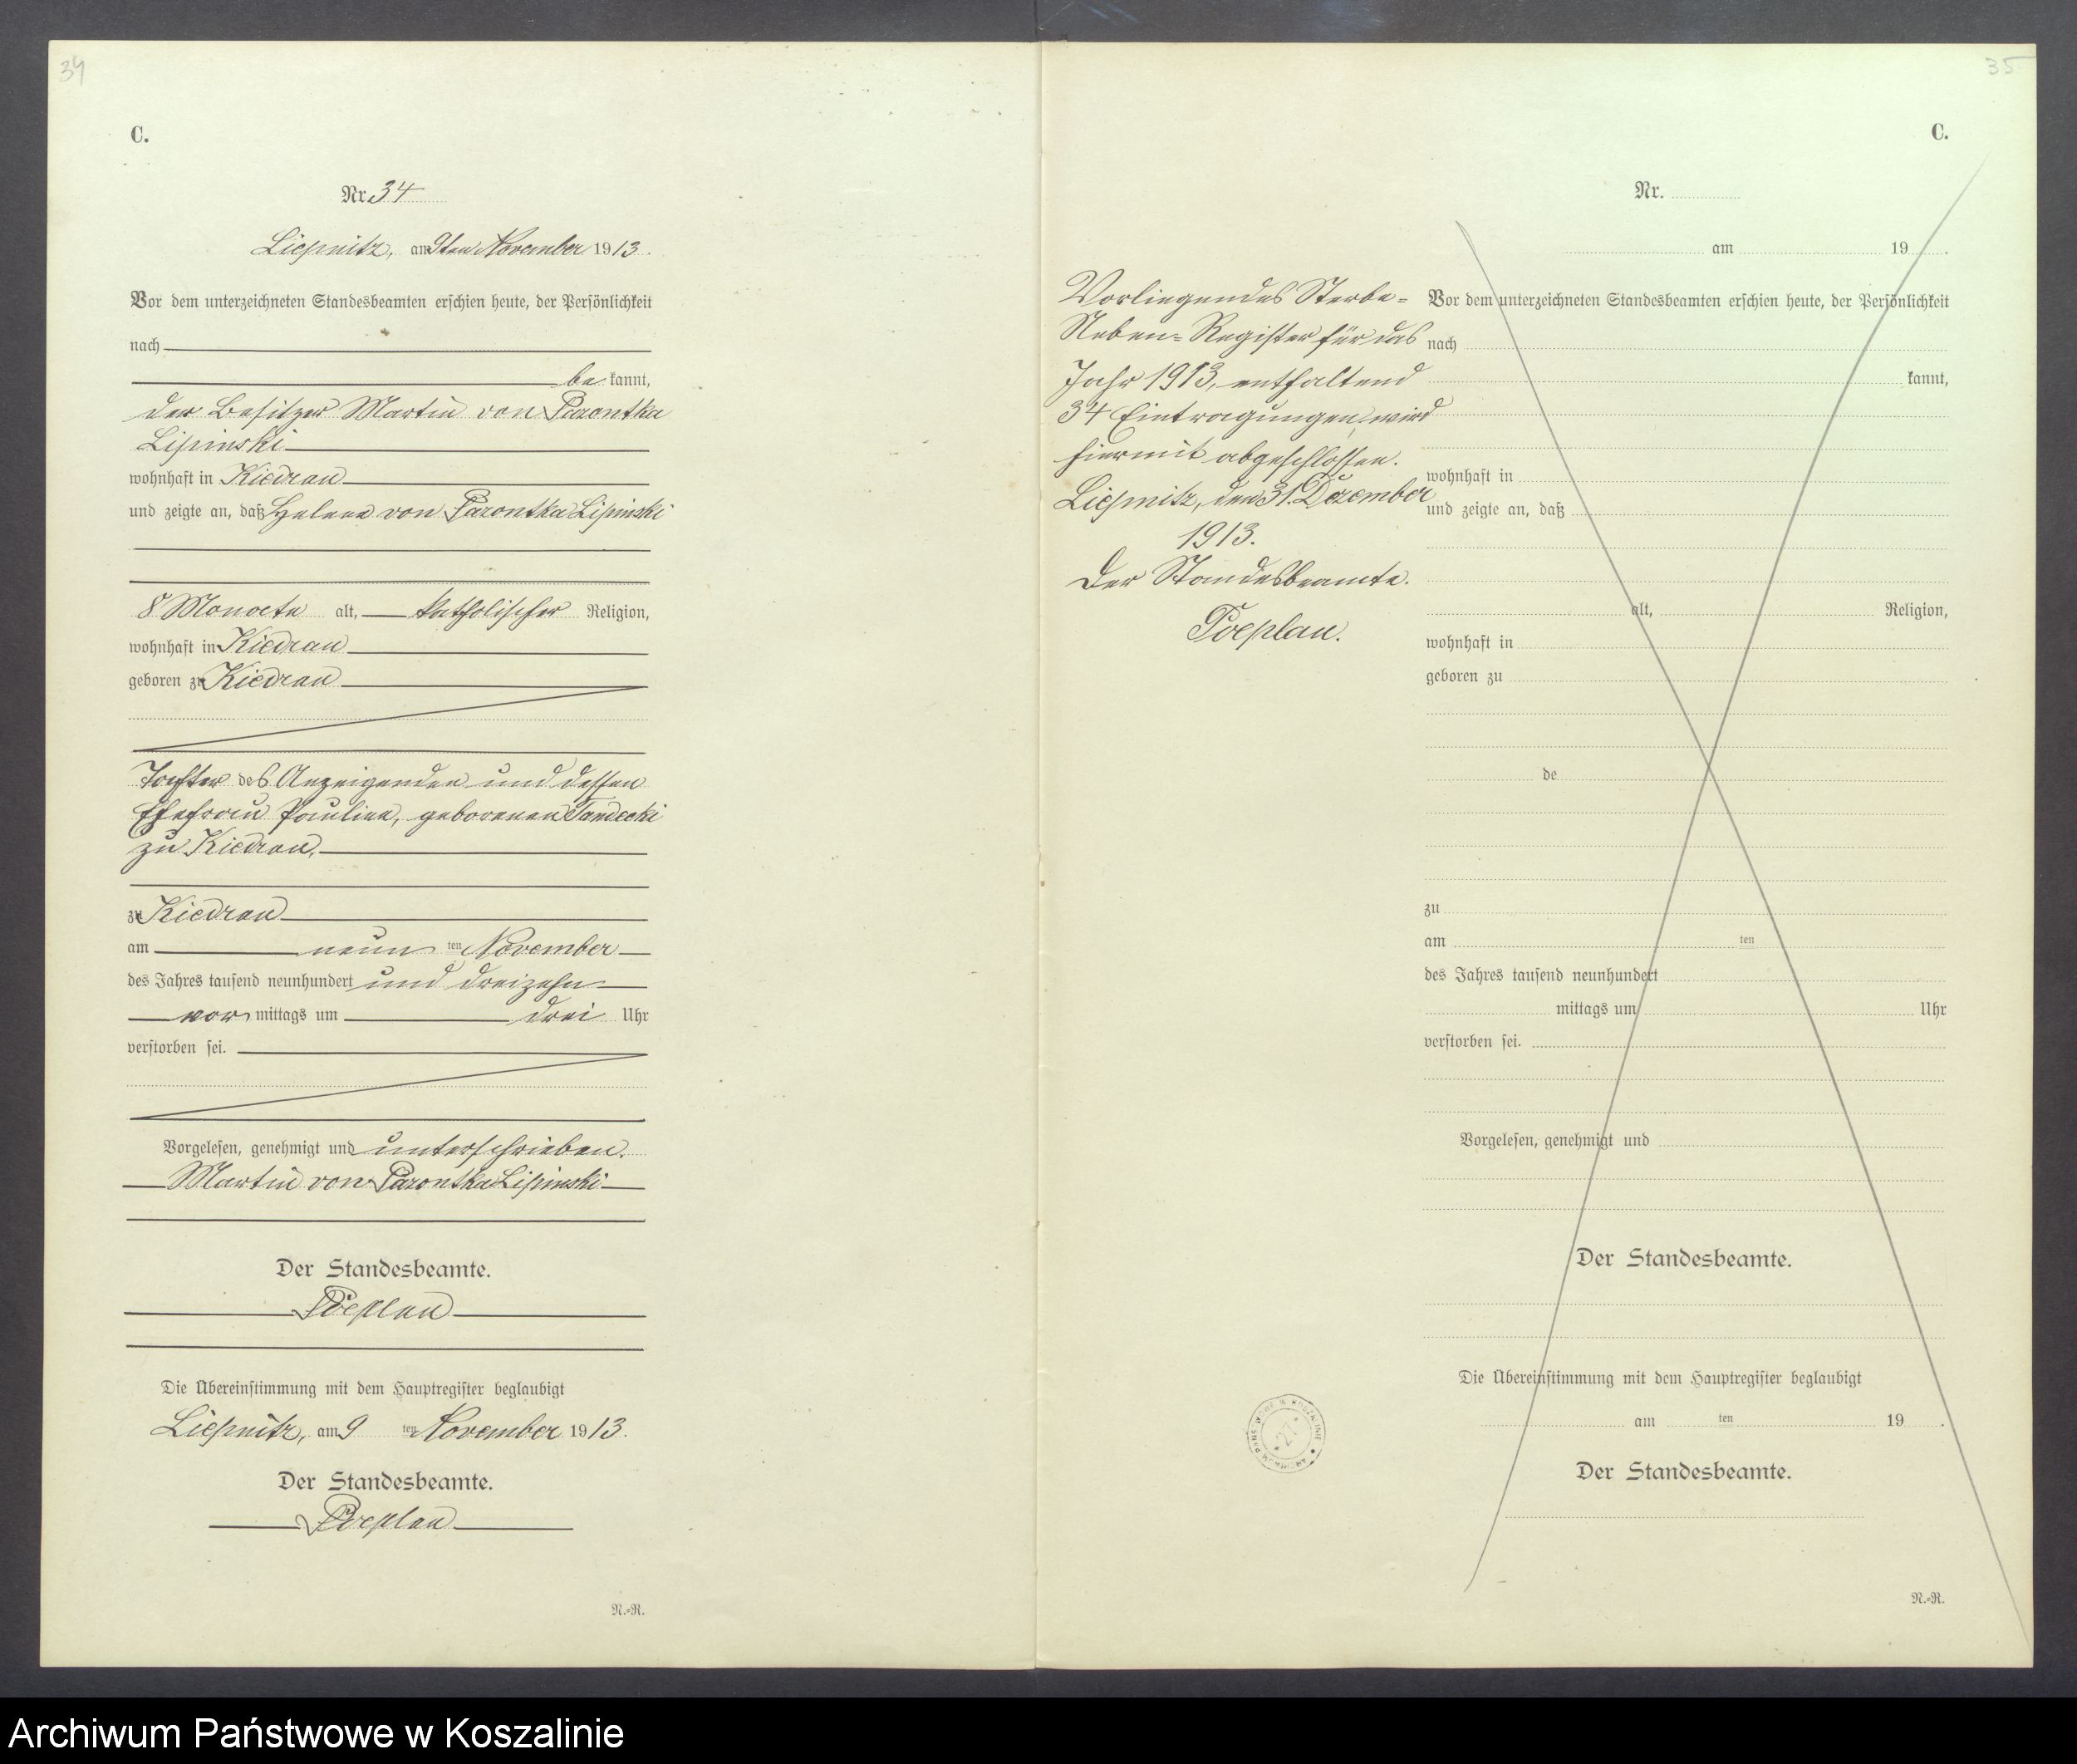 34
C.
Nr. 34
Liepnitz, am 9ten November 1913.
Vor dem unterzeichneten Standesbeamten erschien heute, der Persönlichkeit
nach
be kannt,
der Besitzer Martin von Pazontka
Lipinski
wohnhaft in Kiedrau
und zeigte an, daß Helene von Pazontka Lipinski
8 Monate alt, katholischer Religion,
wohnhaft in Kiedrau
geboren zu Kiedrau
Tochter des Anzeigenden und dessen
Ehefrau Pauline, geborenen Tandecki
zu Kiedrau,
zu Kiedrau
am neun ten November
des Jahres tausend neunhundert und dreizehn
vor mittags um drei Uhr
verstorben sei.
Vorgelesen, genehmigt und unterschrieben.
Martin von Pazontka Lipinski
Der Standesbeamte.
Poeplau
Die Übereinstimmung mit dem Hauptregister beglaubigt
Liepnitz, am 9 ten November 1913.
Der Standesbeamte.
Poeplau
N.-R.
35
C.
Vorliegendes Sterbe-
Neben-Register für das
Jahr 1913, enthaltend
34 Eintragungen, wird
hiermit abgeschlossen.
Liepnitz, den 31. Dezember
1913.
Der Standesbeamte.
Poeplau.
Nr.
am 19 .
Vor dem unterzeichneten Standesbeamten erschien heute, der Persönlichkeit
nach
kannt,
wohnhaft in
und zeigte an, daß
alt, Religion,
wohnhaft in
geboren zu
de
zu
am ten
des Jahres tausend neunhundert
mittags um Uhr
verstorben sei.
Vorgelesen, genehmigt und
Der Standesbeamte.
Die Übereinstimmung mit dem Hauptregister beglaubigt
am ten 19 .
Der Standesbeamte.
N.-R.
ARCHIWUM PAŃSTWOWE W KOSZALINIE
* 27 *
Archiwum Państwowe w Koszalinie